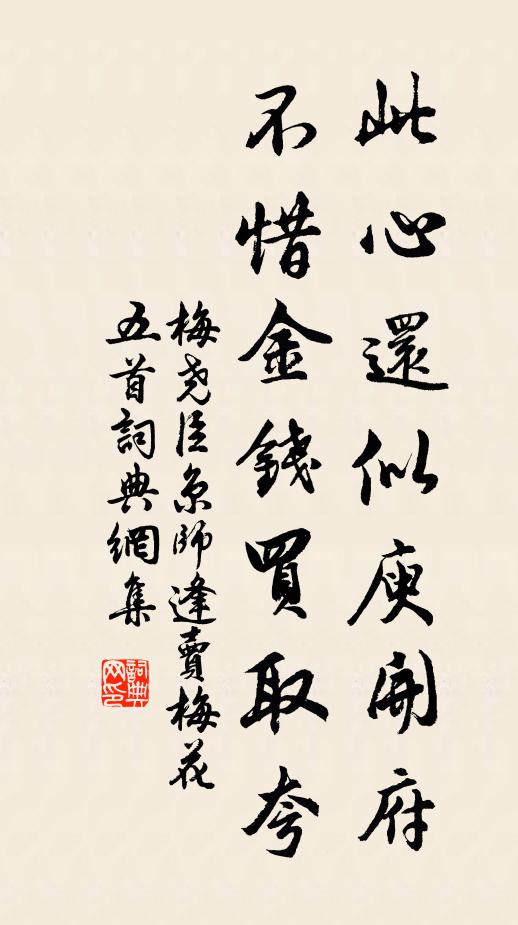 此心還似庾開府
不惜金錢買取夸
梅尧臣京師逢賣梅花
五首詞典網集
詞典
网印